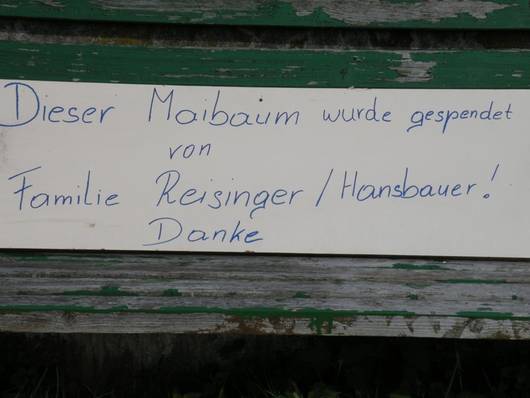 Dieser Maibaum wurde gespendet
von
Familie Reisinger / Hansbauer!
Danke